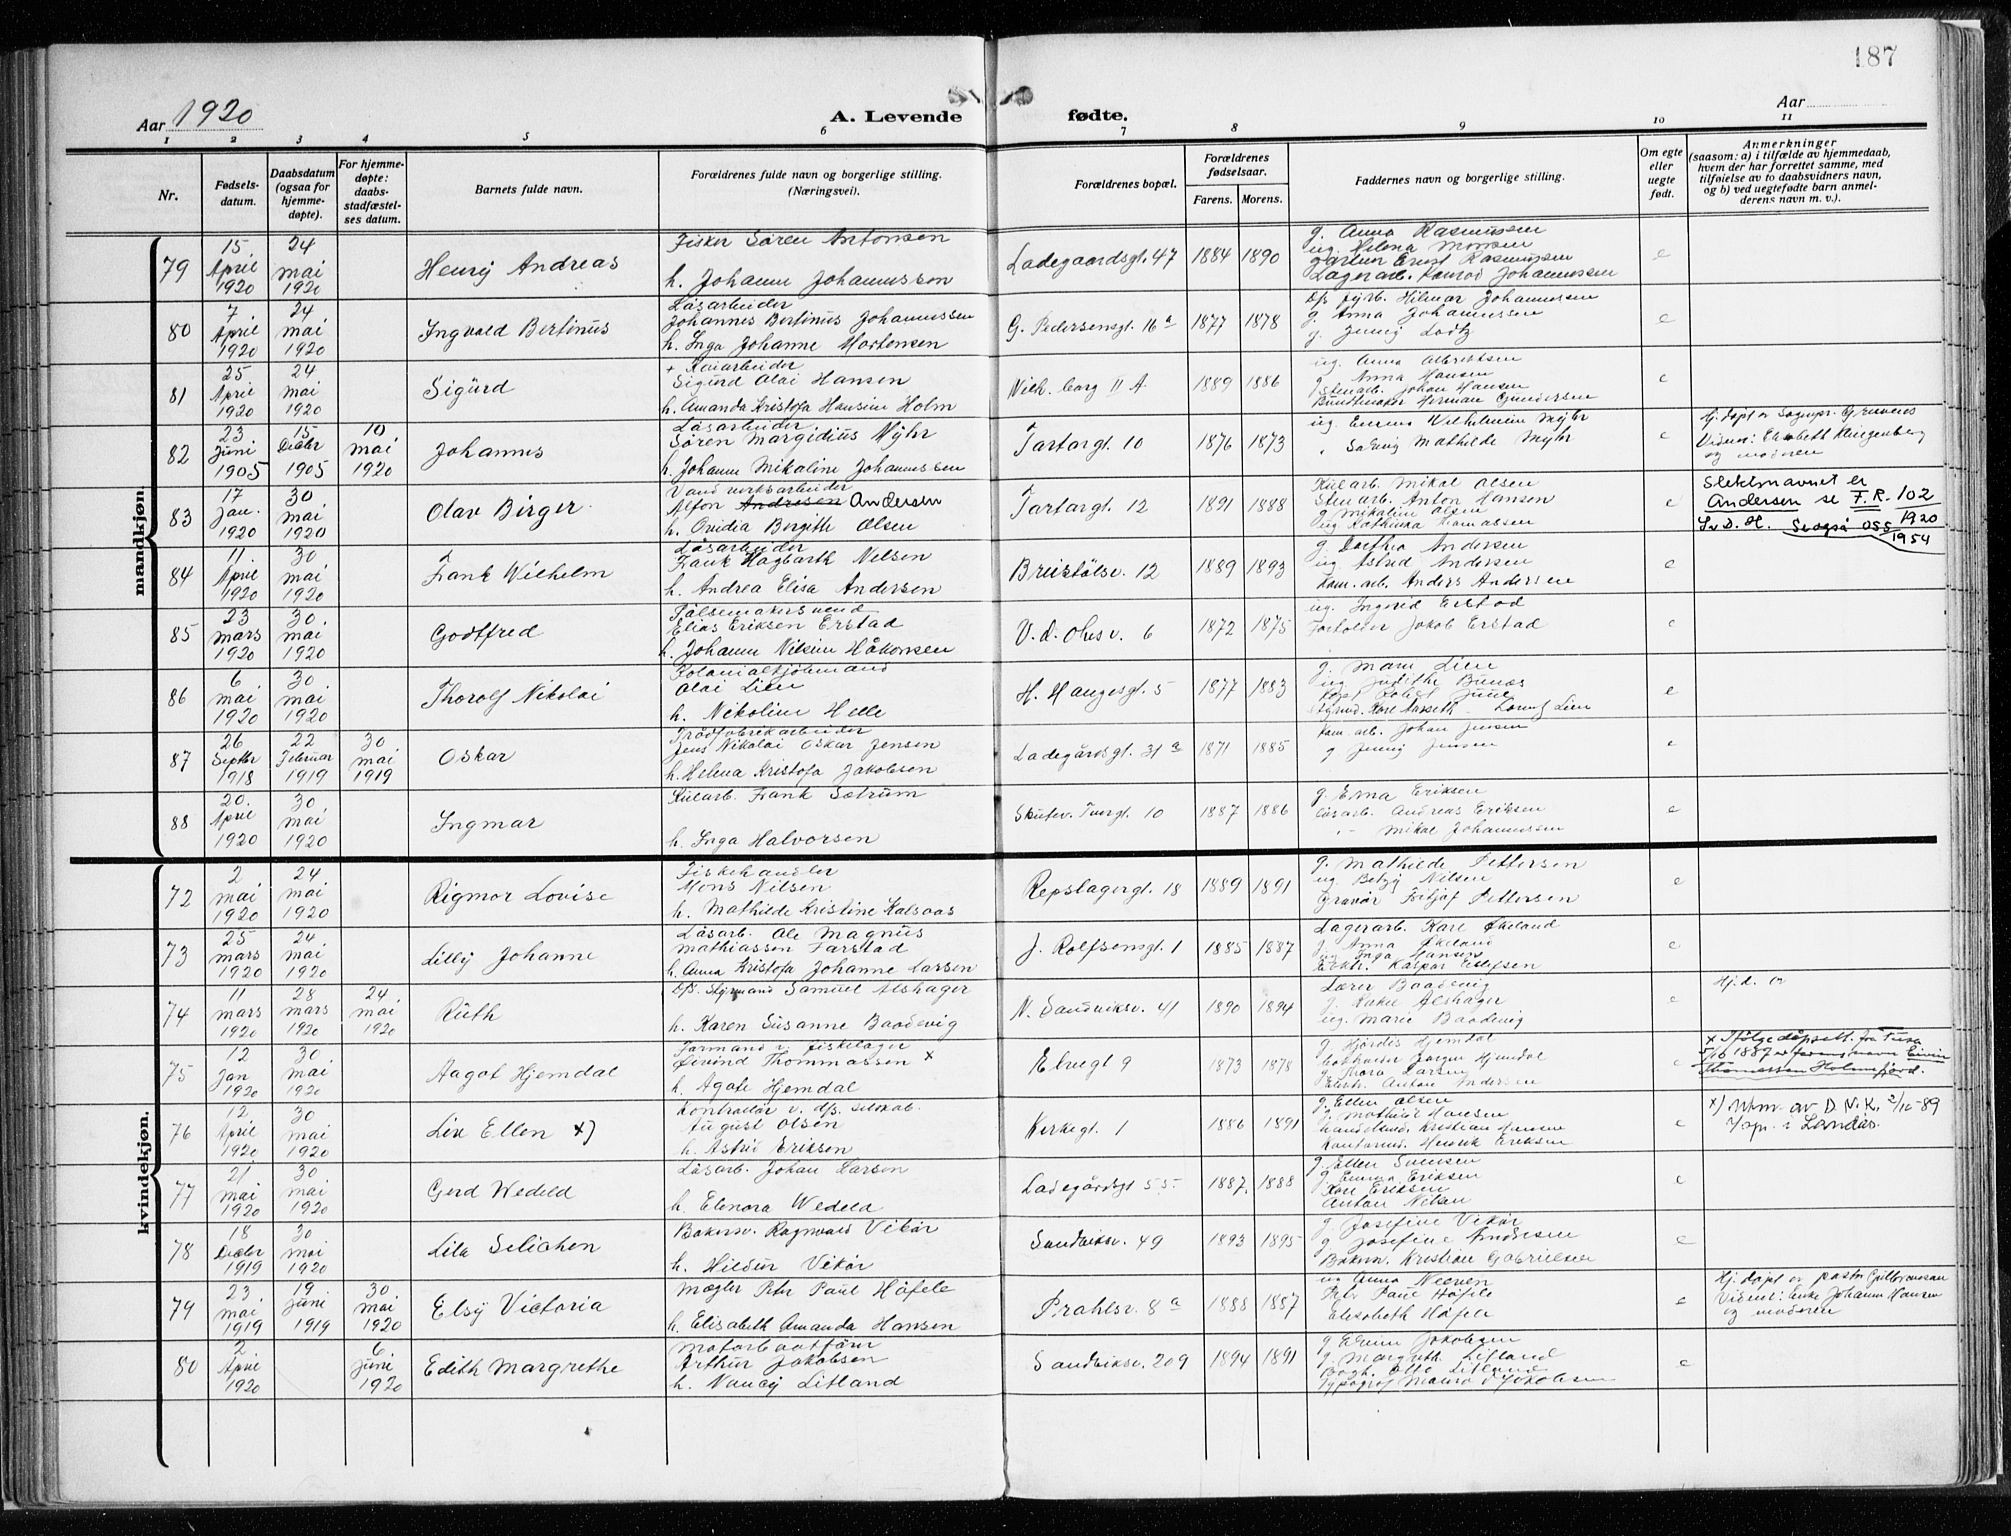 187
Aar 1920
A. Levende fødte.
Aar
1 2 3 4 5 6 7 8 9 10 11
Nr.
Fødsels-
datum.
Daabsdatum
(ogsaa for
hjemme-
døpte).
For hjemme-
døpte:
daabs-
stadfæstel-
ses datum.
Barnets fulde navn.
Forældrenes fulde navn og borgerlige stilling.
(Næringsvei).
Forældrenes bopæl.
Forældrenes
fødselsaar.
Farens. Morens.
Faddernes navn og borgerlige stilling.
Om egte
eller
uegte
født.
Anmerkninger
(saasom: a) i tilfælde av hjemmedaab,
hvem der har forrettet samme, med
tilføielse av to daabsvidners navn,
og b) ved uegtefødte barn anmel-
derens navn m. v.).
mandkjøn.
79
15 April 1920
24 mai 1920
Henry Andreas
Fisker Søren Antonsen
h. Johanne Johannesson
Ladegaardsgt. 47
1884 1890
g. Anna Rasmussen
ug. Helena Monsen
Ernst Rasmussen
Lagerarb. Konrad Johannessen
e
80
7 April 1920
24 mai 1920
Ingvald Bertinus
Løsarbeider
Johannes Bertinus Johannessen
h. Inga Johanne Mortensen
G. Pedersensgt. 16a
1877 1878
D/s fyrb. Hilmar Johannessen
g. Anna Johannessen
g. Jenny Lortz
e
81
25 April 1920
24 mai 1920
Sigurd
+ Kaiarbeider
Sigurd Olai Hansen
h. Amanda Kristofa Hansine Holm
Wilh. borg II A.
1889 1886
ug. Anna Albrektsen
g. Anna Hansen
Stenarb. Johan Hansen
Bundtmaker Herman Gundersen
e
82
23 Juni 1905
15 Decbr 1905
10 mai 1920
Johannes
Løsarbeider
Søren Margidius Myhr
h. Johanne Mikaline Johannessen
Tartargt. 10
1876 1873
ug. Emma Wilhelmine Myhr
" Solveig Mathilde Myhr
e
Hj. døpt av Sognepr. Gruveres
Vidner: Elisabeth Klingenberg
og moderen
83
17 Jan. 1920
30 mai 1920
Olav Birger
Vandverksarbeider
Alfon Andresen Andersen
h. Ovidia Bergithe Olsen
Tartargt. 12
1891 1888
Kularb. Mikal Olsen
Stenarb. Anton Hansen
g. Mikaline Olsen
ug. Kathinka Tomassen
e
Slektsnavnet er
Andersen se F.R. 102
1920
S.v.D.H. Se også 055
1954
84
11. April 1920
30 mai 1920
Frank Wilhelm
Løsarbeider
Frank Hagbarth Nilsen
h. Andrea Elisa Andersen
Breistølsv. 12
1889 1893
g. Dorthea Andersen
ug. Astrid Andersen
Kom. arb. Anders Andersen
e
85
23 mars 1920
30. mai 1920
Godtfred
Pølsemakersvend
Elias Eriksen Erstad
h. Johanne Nilsine Håkonsen
V. d. Ohes v. 6
1872 1875
ug. Ingerid Erstad
Forholder Jakob Erstad
e
86
6 mai 1920
30 mai 1920
Thorolf Nikolai
Kolonialkjøbmand
Olai Lien
h. Nikoline Helle
H. Haugesgt. 5
1877 1883
g. Marie Lien
ug. Judithe Bunæs
e
87
26 Septbr 1918
22 Februar 1919
30 mai 1919
Oskar
Trådfabrikarbeider
Jens Nikolai Oskar Jensen
h. Helena Kristofa Jakobsen
Ladegårdsgt. 31a
1871 1885
Kom. arb. Johan Jensen
g. Jenny Jensen
e
88
20. April 1920
30. mai 1920
Ingmar
Kularb. Frank Sætrum
h. Inga Halvorsen
Skutev. Turrgt. 10
1887 1886
g. Erna Eriksen
Løsarb. Andreas Eriksen
" Mikal Johannessen
e
kvindekjøn.
72
2 mai 1920
24 mai 1920
Rigmor Lovise
Fiskehandler
Mons Nilsen
h. Mathilde Kristine Kalsaas
Repslagergt. 18
1889 1891
g. Mathilde Pettersen
ug. Betzy Nilsen
Gravør Fritjof Pettersen
e
73
25 mars 1920
24 mai 1920
Lilly Johanne
Løsarb. Ole Magnus
Mathiassen Farstad
h. Anna Kristofa Johanne Larsen
J. Rolfsensgt. 1
1885 1887
Lagerarb. Kare Økland
g. Anna Økeland
ug. Inga Hansen
Elektr. Kaspar Ellefsen
e
74
11 mars 1920
28 mars 1920
24 mai 1920
Ruth
D/s. Styrmand Samuel Alshager
h. Karen Susanne Baadevig
N. Sandviksv. 41
1890 1894
Lærer Baadevig
g. Alshager
ug. Marie Baadevig
e
Hj. d. av
75
12 Jan 1920
30 mai 1920
Aagot Hjemdal
Formand i fiskelager
Øivind Thommassen x
h. Agate Hjemdal
Elvegt 9
1873 1878
g. Hjørdis Hjemdal
Jørgen Hjemdal
g. Nora Larsen
Elektr. Anton Andersen
e
x Ifølge dåpsatt. fra Fusa
5/16 1887 er farens navn Eivin
Thomassen Holmefjord.
76
12 April 1920
30 mai 1920
Liv Ellen x)
Kontrollør v. d/s. selskab.
August Olsen
h. Astrid Eriksen
Kirkegt. 1
1886 1891
g. Ellen Olsen
g. Mathilde Hansen
Handelsmd. Kristian Hansen
Kontormd. Henrik Eriksen
e
x) Utm. av D.N.K. 2/10-89
V/sp. i Landås.
77
21 mai 1920
30 mai 1920
Gerd Wedeld
Løsarb. Johan Larsen
h. Elenora Wedeld
Ladegårdsgt 55
1887. 1888
g. Ellen Svensen
g. Emma Eriksen
Karl Eriksen
Anton Nilsen
e
78
18 Decbr 1919
30 mai 1920
Lila Selichen
Bakersv. Ragnvald Vikør
h. Hildur Vikør
Sandviksv. 49
1893 1895
g. Josefine Vikør
g. Josefine Andresen
Bakersv. Kristian Gabrielsen
e
79
23 mai 1919
19 Juni 1919
30 mai 1920
Elsy Victoria
Mægler Peter Paul Høfele
h. Elisabeth Amanda Hansen
Prahlsv. 8a
1888 1887
ug. Anna Neeven
Peter Paul Høfele
Elisabeth Høfele
e
Hj. døpt av pastor Gulbransson
Vidner: Enke Johanne Hansen
og moderen
80
2 April 1920
6 Juni 1920
Edith Margrethe
Motorbaatfører
Arthur Jakobsen
h. Nancy Litland
Sandviksv. 209
1894 1891
g. Jakobsen
g. Margrethe Litland
Otto Litland
Typograf Jakobsen
e